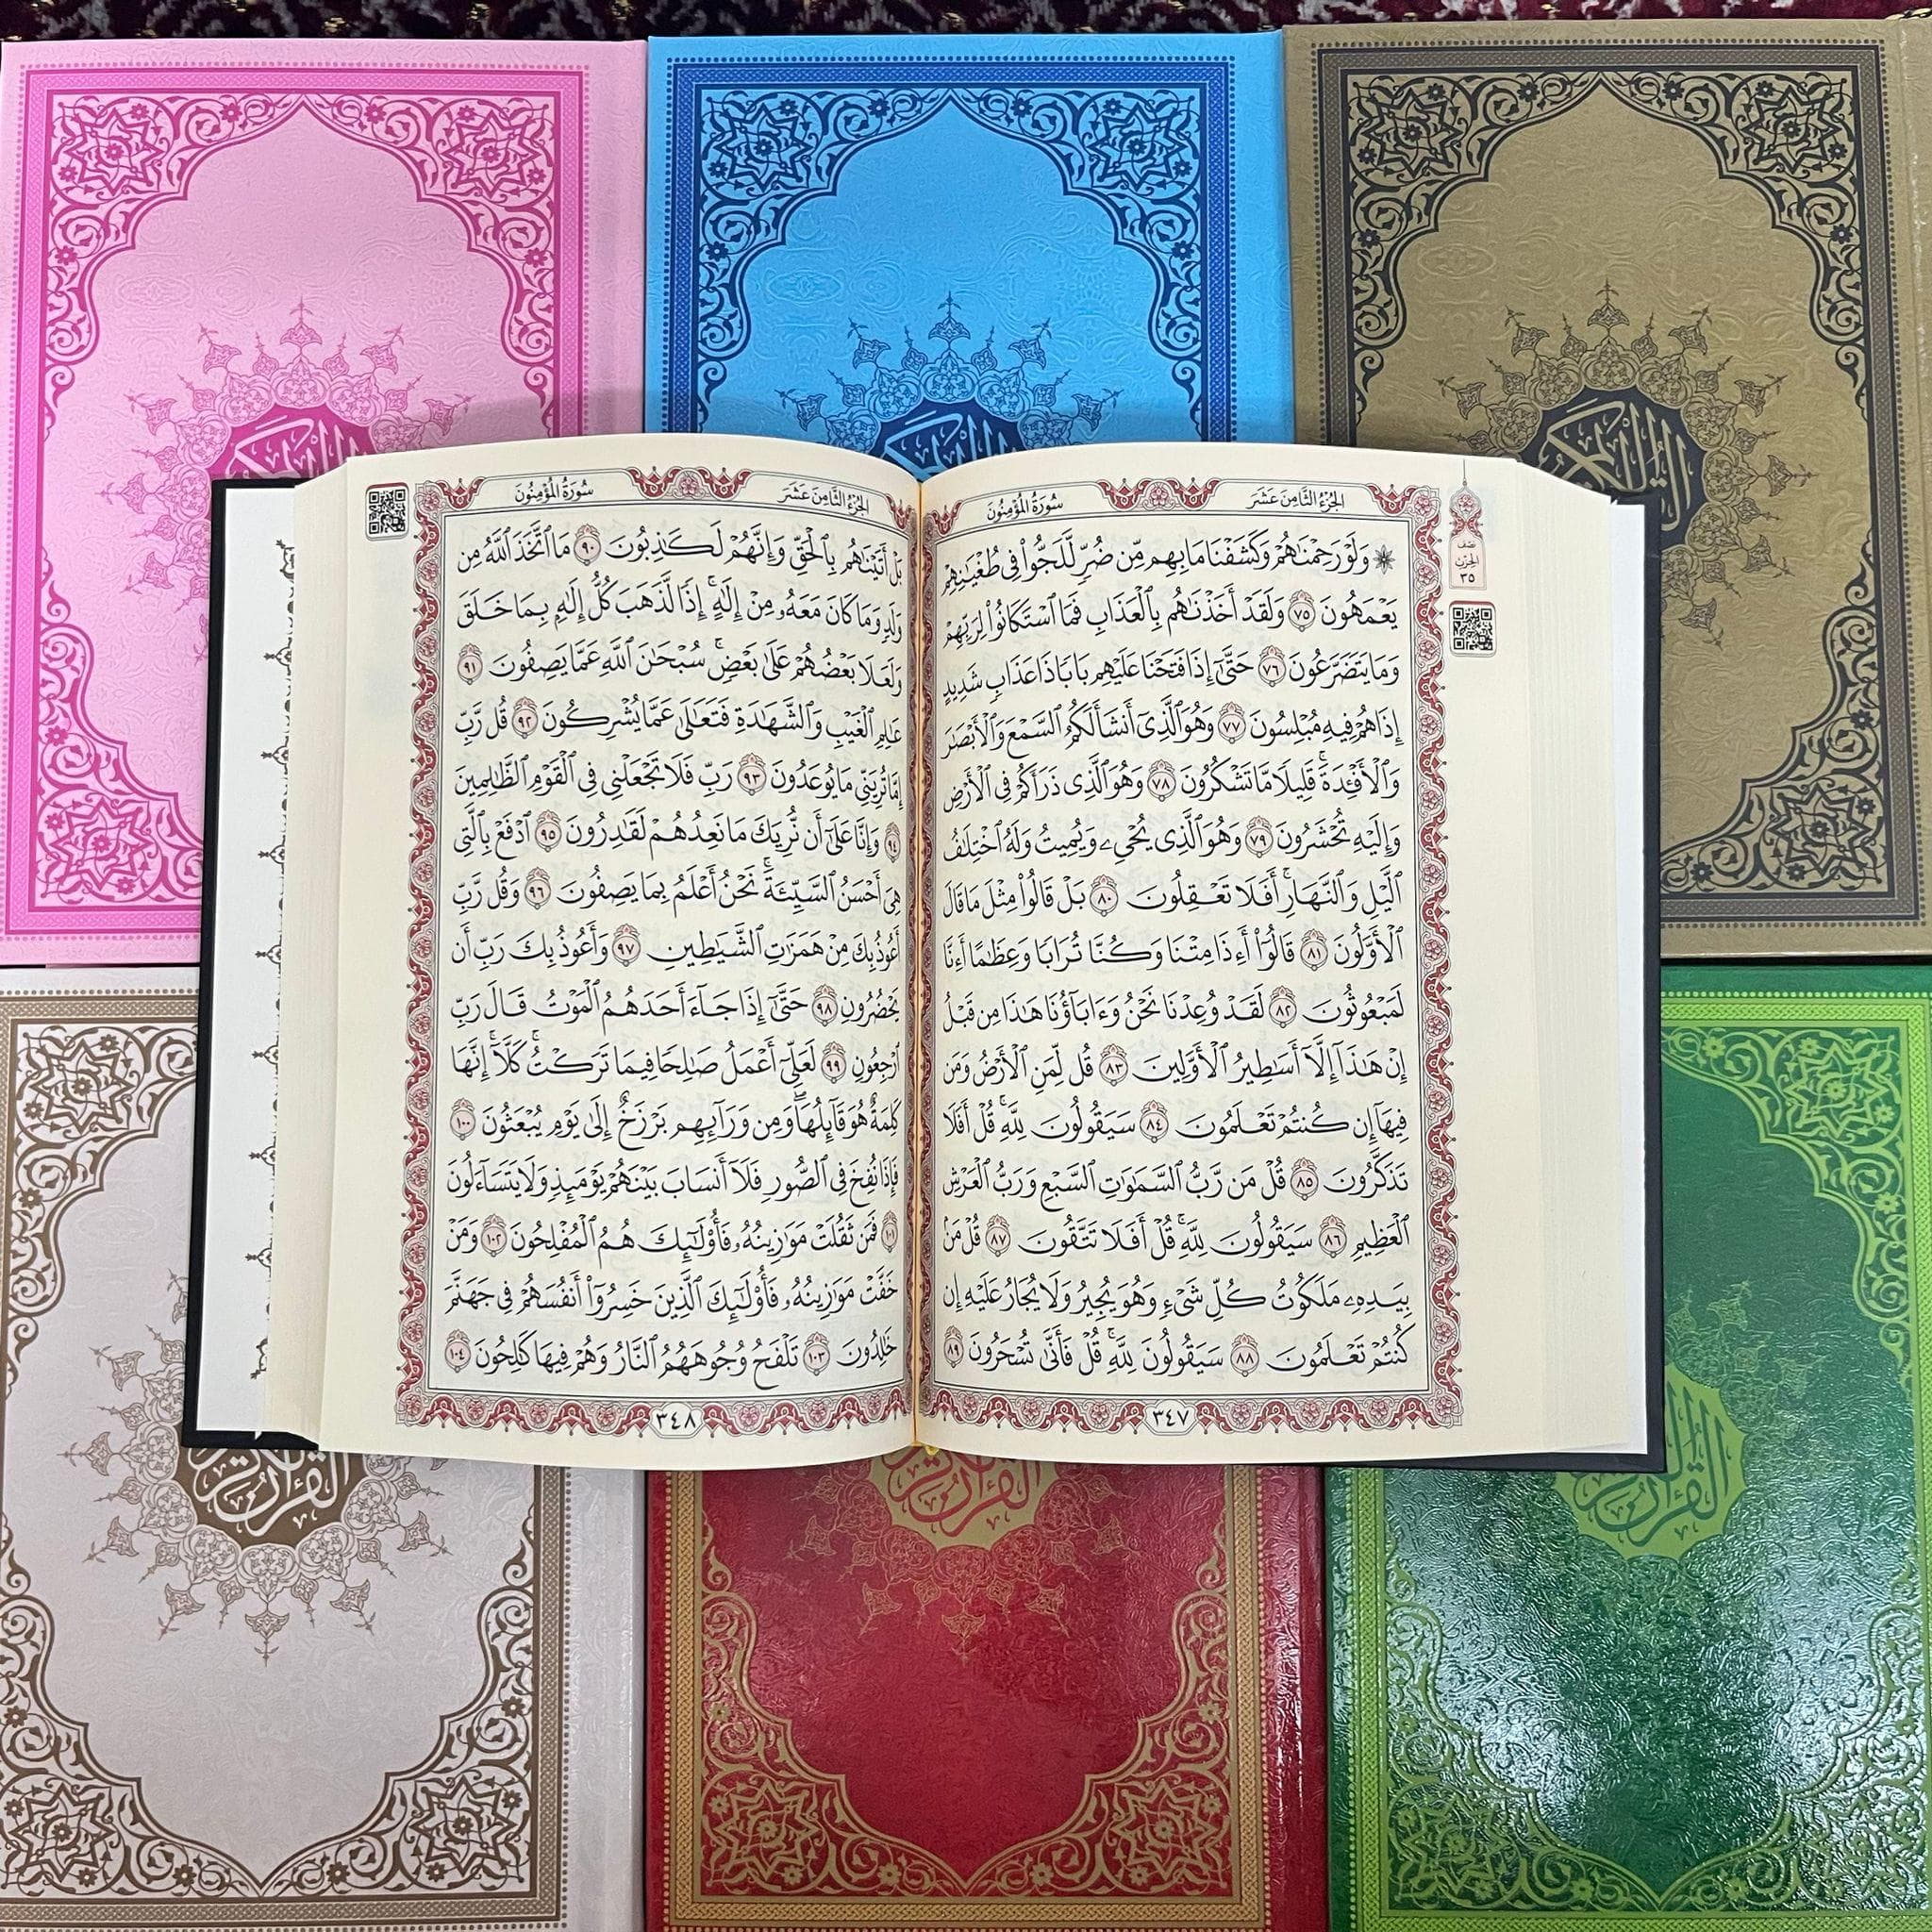 القرآن الكريم
الجزء الثامن عشر
سورة المؤمنون
نصف
الحزب
٣٥
۞ وَلَوْ رَحِمْنَاهُمْ وَكَشَفْنَا مَا بِهِم مِّن ضُرٍّ لَّلَجُّوا۟ فِى طُغْيَـٰنِهِمْ
يَعْمَهُونَ ٧٥ وَلَقَدْ أَخَذْنَـٰهُم بِٱلْعَذَابِ فَمَا ٱسْتَكَانُوا۟ لِرَبِّهِمْ
وَمَا يَتَضَرَّعُونَ ٧٦ حَتَّىٰٓ إِذَا فَتَحْنَا عَلَيْهِم بَابًا ذَا عَذَابٍ شَدِيدٍ
إِذَا هُمْ فِيهِ مُبْلِسُونَ ٧٧ وَهُوَ ٱلَّذِىٓ أَنشَأَ لَكُمُ ٱلسَّمْعَ وَٱلْأَبْصَـٰرَ
وَٱلْأَفْـِٔدَةَ ۚ قَلِيلًا مَّا تَشْكُرُونَ ٧٨ وَهُوَ ٱلَّذِى ذَرَأَكُمْ فِى ٱلْأَرْضِ
وَإِلَيْهِ تُحْشَرُونَ ٧٩ وَهُوَ ٱلَّذِى يُحْىِۦ وَيُمِيتُ وَلَهُ ٱخْتِلَـٰفُ
ٱلَّيْلِ وَٱلنَّهَارِ ۚ أَفَلَا تَعْقِلُونَ ٨٠ بَلْ قَالُوا۟ مِثْلَ مَا قَالَ
ٱلْأَوَّلُونَ ٨١ قَالُوٓا۟ أَءِذَا مِتْنَا وَكُنَّا تُرَابًا وَعِظَـٰمًا أَءِنَّا
لَمَبْعُوثُونَ ٨٢ لَقَدْ وُعِدْنَا نَحْنُ وَءَابَآؤُنَا هَـٰذَا مِن قَبْلُ
إِنْ هَـٰذَآ إِلَّآ أَسَـٰطِيرُ ٱلْأَوَّلِينَ ٨٣ قُل لِّمَنِ ٱلْأَرْضُ وَمَن
فِيهَآ إِن كُنتُمْ تَعْلَمُونَ ٨٤ سَيَقُولُونَ لِلَّهِ ۚ قُلْ أَفَلَا
تَذَكَّرُونَ ٨٥ قُلْ مَن رَّبُّ ٱلسَّمَـٰوَٰتِ ٱلسَّبْعِ وَرَبُّ ٱلْعَرْشِ
ٱلْعَظِيمِ ٨٦ سَيَقُولُونَ لِلَّهِ ۚ قُلْ أَفَلَا تَتَّقُونَ ٨٧ قُلْ مَنۢ
بِيَدِهِۦ مَلَكُوتُ كُلِّ شَىْءٍ وَهُوَ يُجِيرُ وَلَا يُجَارُ عَلَيْهِ إِن
كُنتُمْ تَعْلَمُونَ ٨٨ سَيَقُولُونَ لِلَّهِ ۚ قُلْ فَأَنَّىٰ تُسْحَرُونَ ٨٩
٣٤٧
الجزء الثامن عشر
سورة المؤمنون
بَلْ أَتَيْنَـٰهُم بِٱلْحَقِّ وَإِنَّهُمْ لَكَـٰذِبُونَ ٩٠ مَا ٱتَّخَذَ ٱللَّهُ مِن
وَلَدٍ وَمَا كَانَ مَعَهُۥ مِنْ إِلَـٰهٍ ۚ إِذًا لَّذَهَبَ كُلُّ إِلَـٰهٍۭ بِمَا خَلَقَ
وَلَعَلَا بَعْضُهُمْ عَلَىٰ بَعْضٍ ۚ سُبْحَـٰنَ ٱللَّهِ عَمَّا يَصِفُونَ ٩١
عَـٰلِمِ ٱلْغَيْبِ وَٱلشَّهَـٰدَةِ فَتَعَـٰلَىٰ عَمَّا يُشْرِكُونَ ٩٢ قُل رَّبِّ
إِمَّا تُرِيَنِّى مَا يُوعَدُونَ ٩٣ رَبِّ فَلَا تَجْعَلْنِى فِى ٱلْقَوْمِ ٱلظَّـٰلِمِينَ
٩٤ وَإِنَّا عَلَىٰٓ أَن نُّرِيَكَ مَا نَعِدُهُمْ لَقَـٰدِرُونَ ٩٥ ٱدْفَعْ بِٱلَّتِى
هِىَ أَحْسَنُ ٱلسَّيِّئَةَ ۚ نَحْنُ أَعْلَمُ بِمَا يَصِفُونَ ٩٦ وَقُل رَّبِّ
أَعُوذُ بِكَ مِنْ هَمَزَٰتِ ٱلشَّيَـٰطِينِ ٩٧ وَأَعُوذُ بِكَ رَبِّ أَن
يَحْضُرُونِ ٩٨ حَتَّىٰٓ إِذَا جَآءَ أَحَدَهُمُ ٱلْمَوْتُ قَالَ رَبِّ
ٱرْجِعُونِ ٩٩ لَعَلِّىٓ أَعْمَلُ صَـٰلِحًا فِيمَا تَرَكْتُ ۚ كَلَّآ ۚ إِنَّهَا
كَلِمَةٌ هُوَ قَآئِلُهَا ۖ وَمِن وَرَآئِهِم بَرْزَخٌ إِلَىٰ يَوْمِ يُبْعَثُونَ ١٠٠
فَإِذَا نُفِخَ فِى ٱلصُّورِ فَلَآ أَنسَابَ بَيْنَهُمْ يَوْمَئِذٍ وَلَا يَتَسَآءَلُونَ
١٠١ فَمَن ثَقُلَتْ مَوَٰزِينُهُۥ فَأُو۟لَـٰٓئِكَ هُمُ ٱلْمُفْلِحُونَ ١٠٢ وَمَنْ
خَفَّتْ مَوَٰزِينُهُۥ فَأُو۟لَـٰٓئِكَ ٱلَّذِينَ خَسِرُوٓا۟ أَنفُسَهُمْ فِى جَهَنَّمَ
خَـٰلِدُونَ ١٠٣ تَلْفَحُ وُجُوهَهُمُ ٱلنَّارُ وَهُمْ فِيهَا كَـٰلِحُونَ ١٠٤
٣٤٨
القرآن
القرآن
القرآن